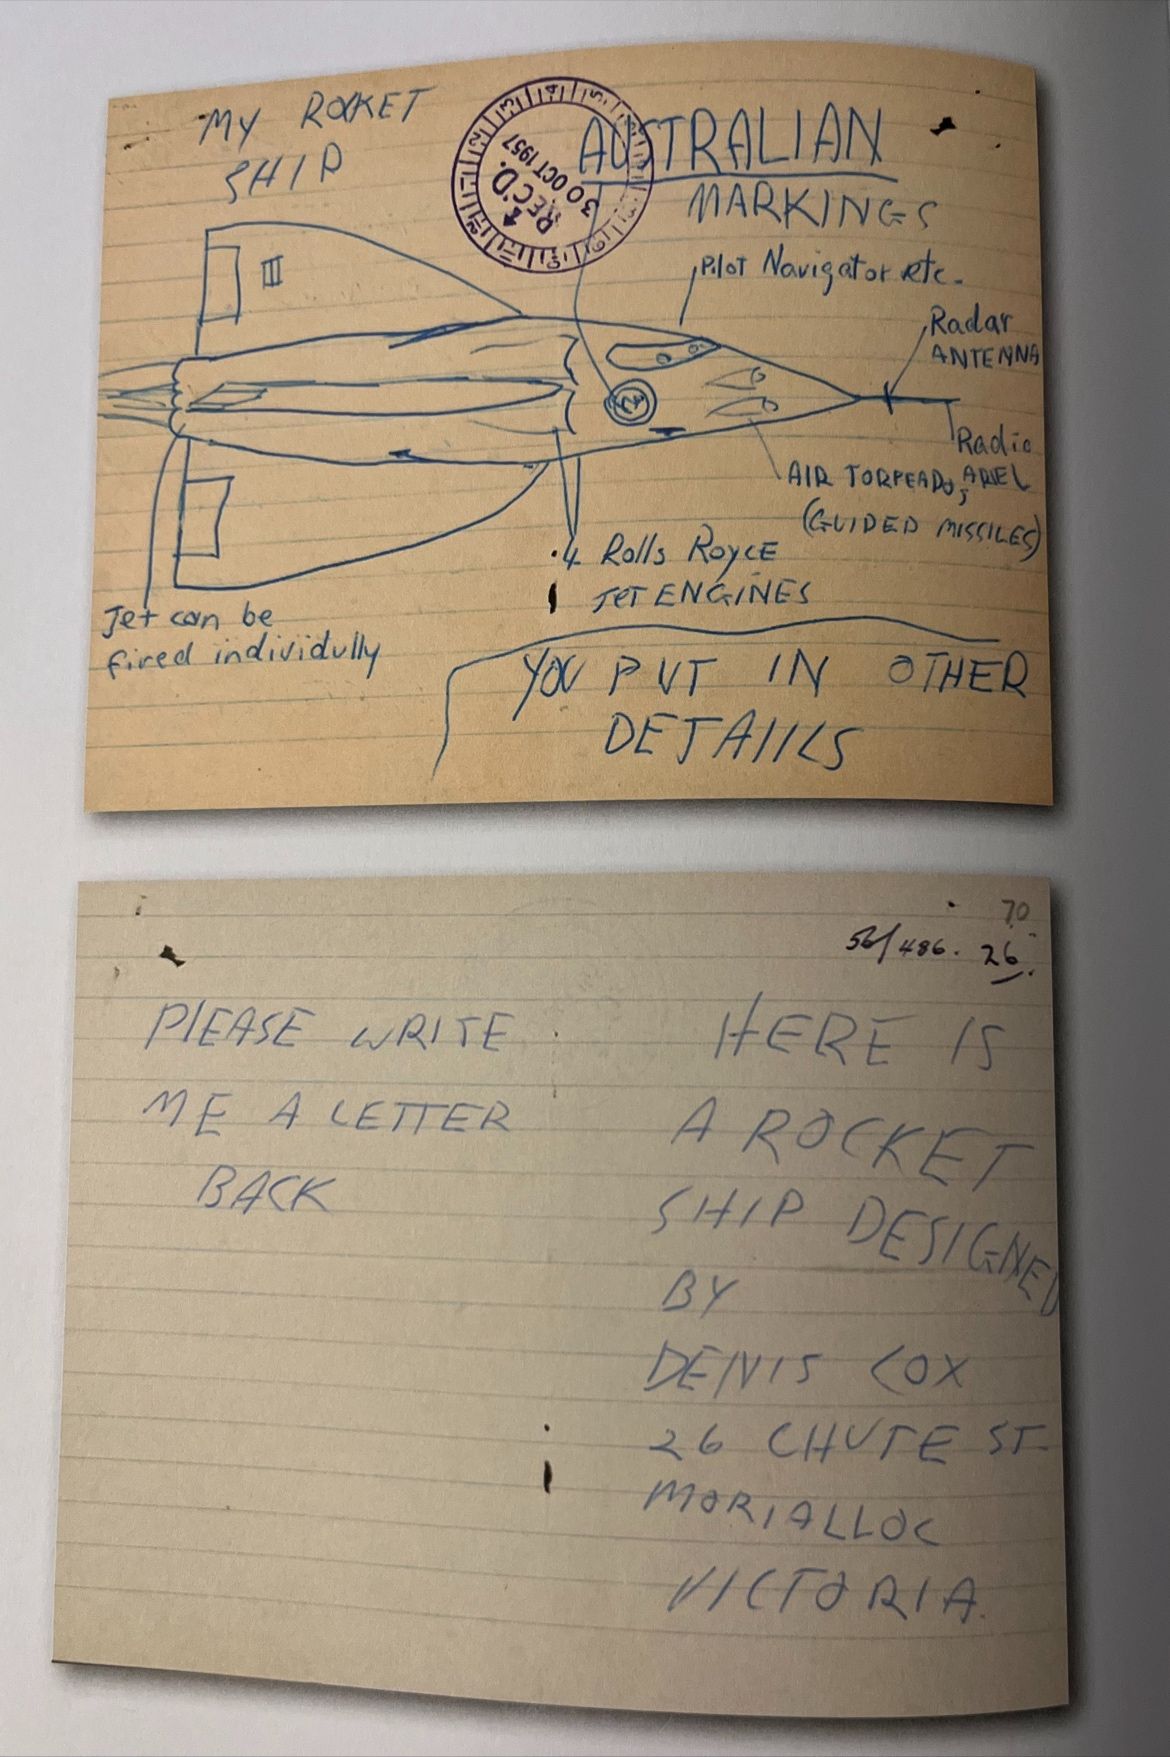 MY ROCKET
SHIP
REC'D.
30 OCT 1957
AUSTRALIAN
MARKINGS
Pilot Navigator etc.
Radar
ANTENNA
III
Radio
ARIEL
AIR TORPEADOS
(GUIDED MISSILES)
4 Rolls Royce
JET ENGINES
Jet can be
fired individully
YOU PUT IN OTHER
DETAIILS
70
56/486. 26
PLEASE WRITE
ME A LETTER
BACK
HERE IS
A ROCKET
SHIP DESIGNED
BY
DENIS COX
26 CHUTE ST.
MORIALLOC
VICTORIA.